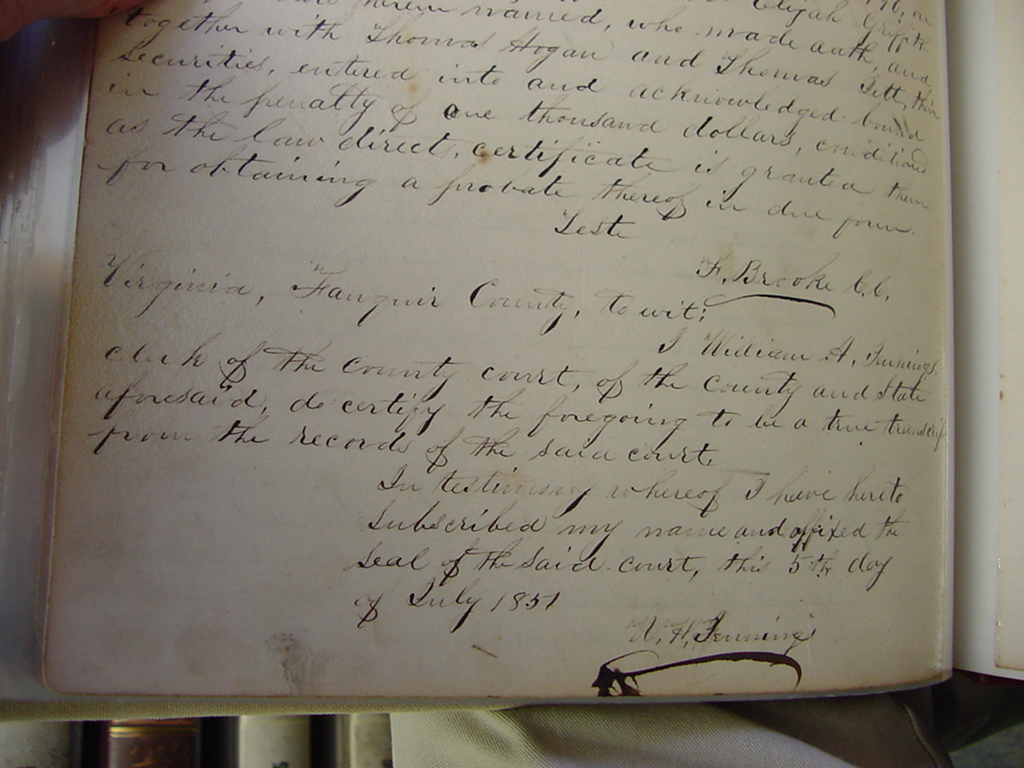 herein named, who made oath, and
together with Thomas Hogan and Thomas
Securities, entered into and acknowledged bound
in the penalty of one thousand dollars, conditioned
as the law direct, certificate is granted them
for obtaining a probate thereof in due form.
Teste
F. Brooke C.C.
Virginia, Fauquir County, to wit:
I William A. Jennings
clerk of the county court, of the county and State
aforesaid, do certify the foregoing to be a true transcrip
from the records of the said court.
In testimony whereof I have hereto
Subscribed my name and affixed the
seal of the said court, this 5th day
of July 1851
Jennings